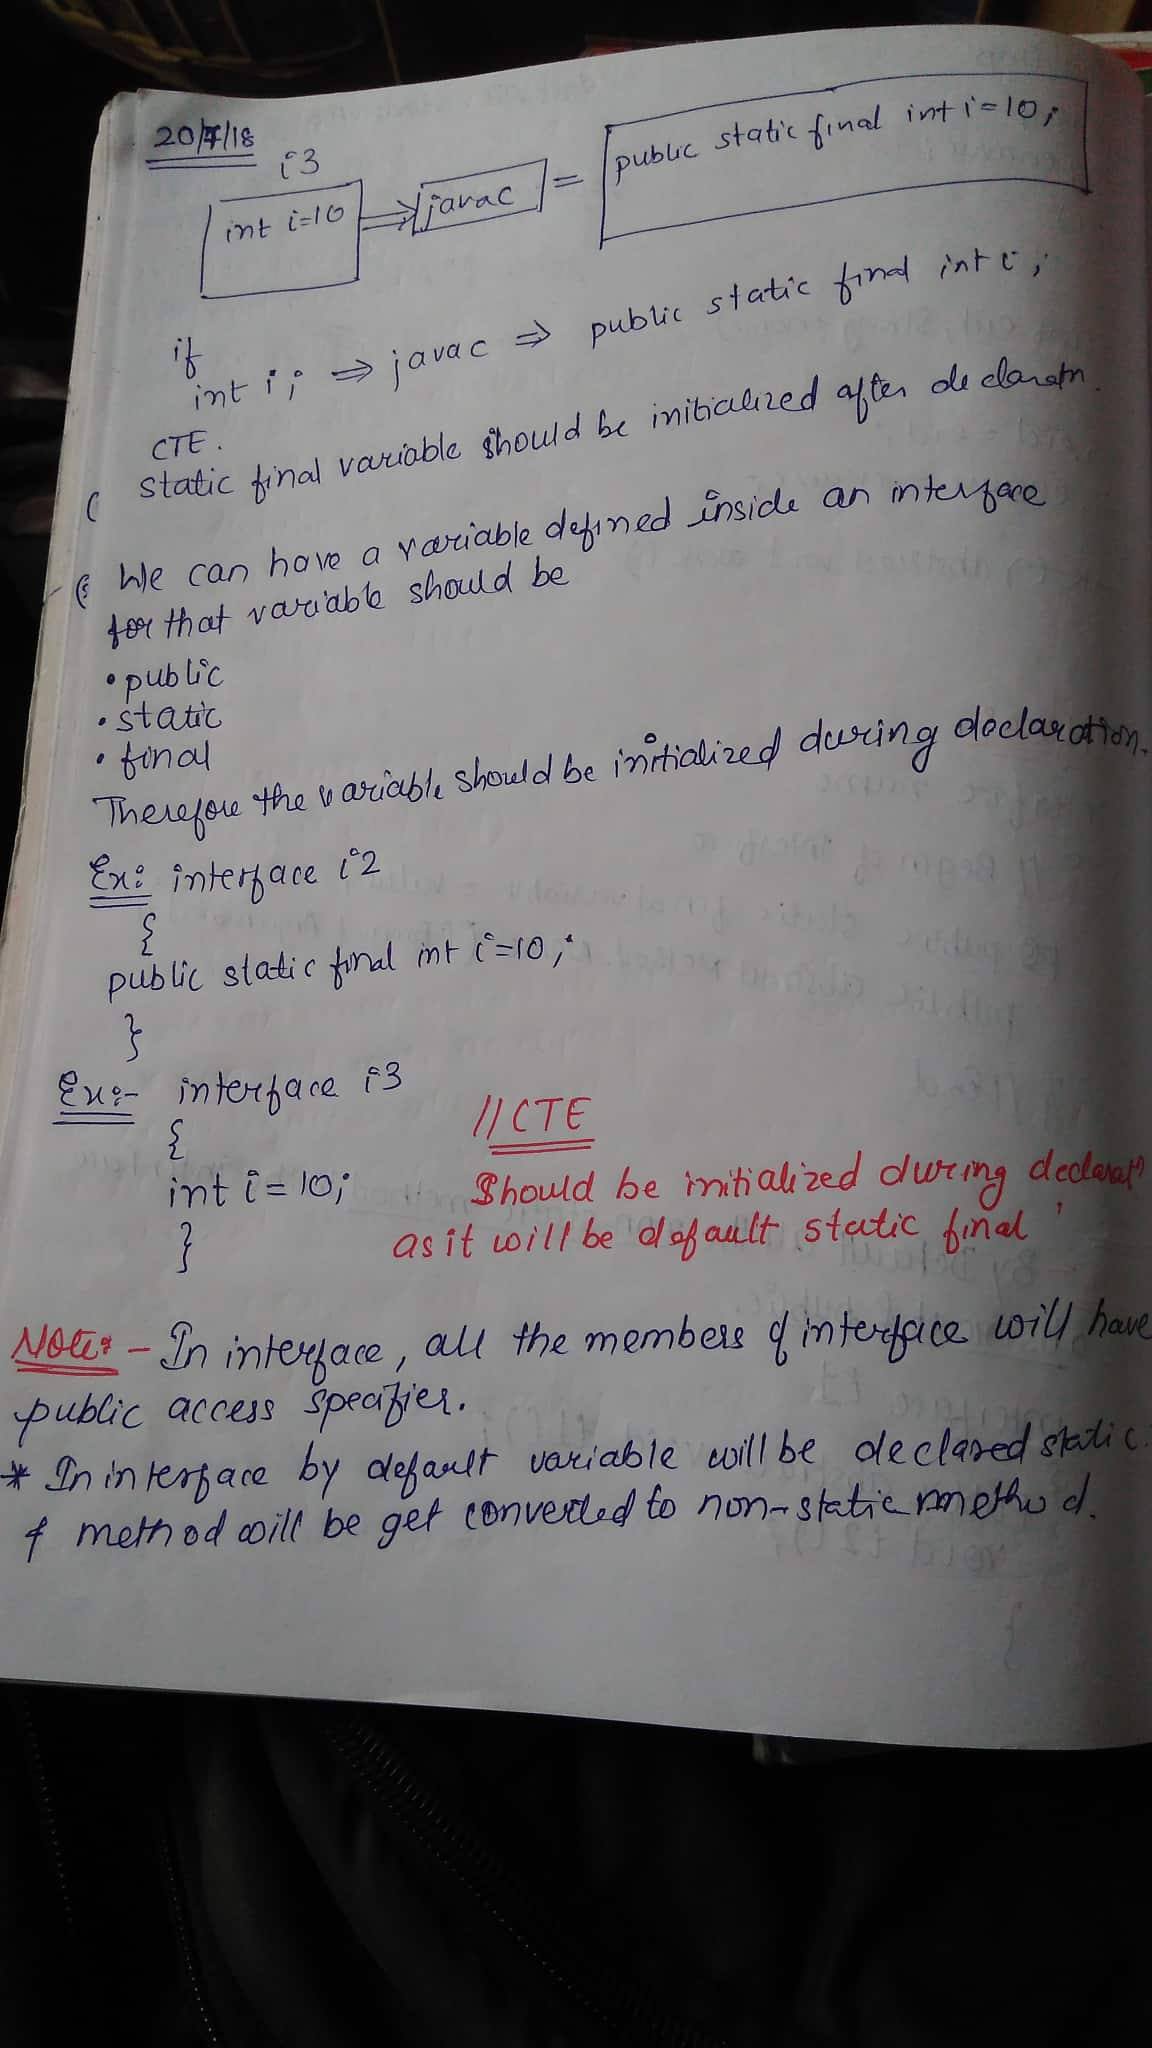 20/7/18
i3
int i=10 ⇒ javac = public static final int i=10;
if
int i; ⇒ javac ⇒ public static final int i;
CTE.
( static final variable should be initialized after declaratn.
We can have a variable defined inside an interface
for that variable should be
• public
• static
• final
Therefore the variable should be initialized during declaration.
Ex: interface i2
{
public static final int i=10;
}
Ex:- interface i3
{ //CTE
int i = 10; Should be initialized during declarat^n
} as it will be default static final
Note:- In interface, all the members of interface will have
public access specifier.
* In interface by default variable will be declared static.
& method will be get converted to non-static method.